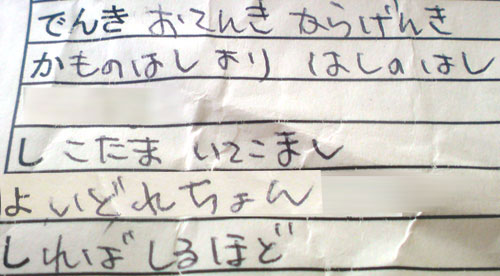 でんき おてんき ならげんき
かものはし より はしのはし
しこたま いてこまし
よいどれちょん
しればしるほど